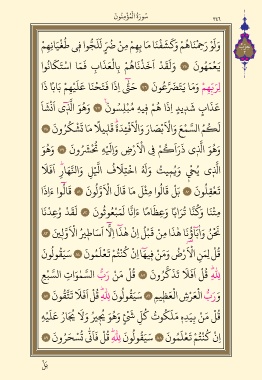 سُورَةُ الْمُؤْمِنُونَ
٣٤٦
وَلَوْ رَحِمْنَاهُمْ وَكَشَفْنَا مَا بِهِمْ مِنْ ضُرٍّ لَلَجُّوا فِى طُغْيَانِهِمْ
يَعْمَهُونَ ٧٥ وَلَقَدْ اَخَذْنَاهُمْ بِالْعَذَابِ فَمَا اسْتَكَانُوا
لِرَبِّهِمْ وَمَا يَتَضَرَّعُونَ ٧٦ حَتّٰٓى اِذَا فَتَحْنَا عَلَيْهِمْ بَابًا ذَا
عَذَابٍ شَدِيدٍ اِذَا هُمْ فِيهِ مُبْلِسُونَ ٧٧ وَهُوَ الَّذِٓى اَنْشَاَ
لَكُمُ السَّمْعَ وَالْاَبْصَارَ وَالْاَفْـِٔدَةَ قَلِيلًا مَا تَشْكُرُونَ ٧٨
وَهُوَ الَّذِى ذَرَاَكُمْ فِى الْاَرْضِ وَاِلَيْهِ تُحْشَرُونَ ٧٩ وَهُوَ
الَّذِى يُحْيِ وَيُمِيتُ وَلَهُ اخْتِلَافُ الَّيْلِ وَالنَّهَارِ اَفَلَا
تَعْقِلُونَ ٨٠ بَلْ قَالُوا مِثْلَ مَا قَالَ الْاَوَّلُونَ ٨١ قَالُٓوا ءَاِذَا
مِتْنَا وَكُنَّا تُرَابًا وَعِظَامًا ءَاِنَّا لَمَبْعُوثُونَ ٨٢ لَقَدْ وُعِدْنَا
نَحْنُ وَاٰبَٓاؤُ۬نَا هٰذَا مِنْ قَبْلُ اِنْ هٰذَٓا اِلَّٓا اَسَاطِيرُ الْاَوَّلِينَ ٨٣
قُلْ لِمَنِ الْاَرْضُ وَمَنْ فِيهَٓا اِنْ كُنْتُمْ تَعْلَمُونَ ٨٤ سَيَقُولُونَ
لِلّٰهِ قُلْ اَفَلَا تَذَكَّرُونَ ٨٥ قُلْ مَنْ رَبُّ السَّمٰوَاتِ السَّبْعِ
وَرَبُّ الْعَرْشِ الْعَظِيمِ ٨٦ سَيَقُولُونَ لِلّٰهِ قُلْ اَفَلَا تَتَّقُونَ ٨٧
قُلْ مَنْ بِيَدِهِ مَلَكُوتُ كُلِّ شَيْءٍ وَهُوَ يُجِيرُ وَلَا يُجَارُ عَلَيْهِ
اِنْ كُنْتُمْ تَعْلَمُونَ ٨٨ سَيَقُولُونَ لِلّٰهِ قُلْ فَاَنّٰى تُسْحَرُونَ ٨٩
بَلْ